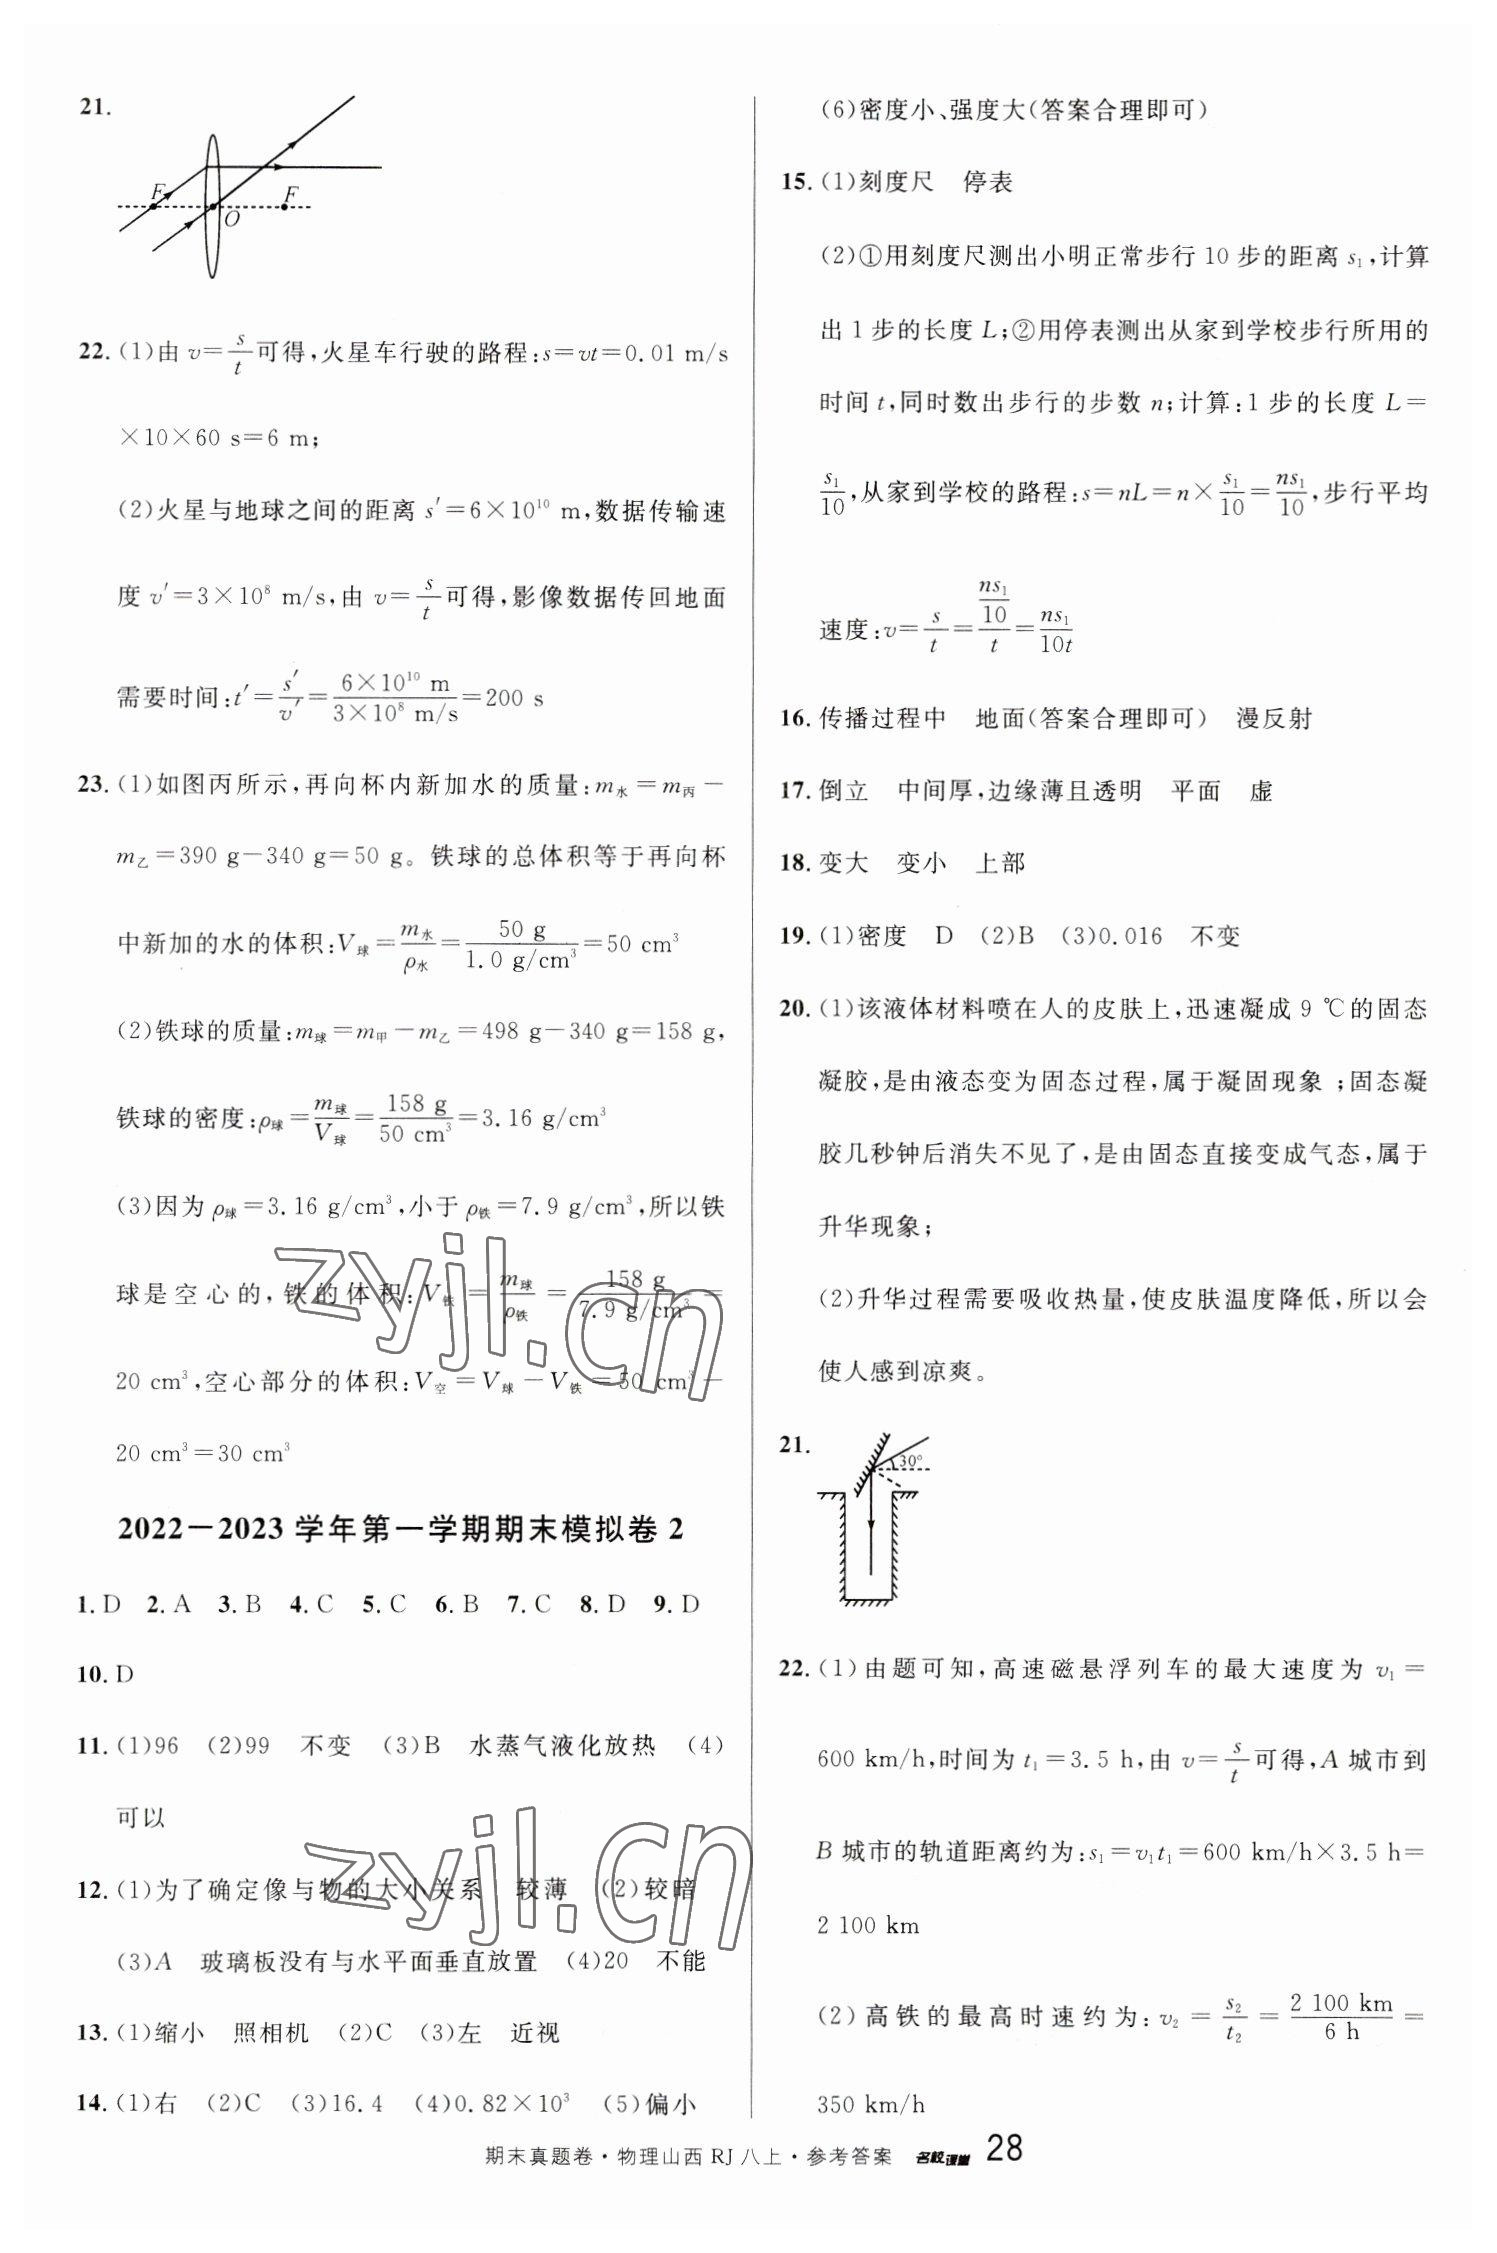 21.
F
F
O
22. (1)由 v=s/t可得,火星车行驶的路程:s=vt=0.01 m/s
×10×60 s=6 m;
(2)火星与地球之间的距离 s′=6×10¹⁰ m,数据传输速
度 v′=3×10⁸ m/s,由 v=s/t可得,影像数据传回地面
需要时间:t′=s′/v′=6×10¹⁰ m/3×10⁸ m/s=200 s
23. (1)如图丙所示,再向杯内新加水的质量:m水=m丙-
m乙=390 g-340 g=50 g。铁球的总体积等于再向杯
中新加的水的体积:V球=m水/ρ水=50 g/1.0 g/cm³=50 cm³
(2)铁球的质量:m球=m甲-m乙=498 g-340 g=158 g,
铁球的密度:ρ球=m球/V球=158 g/50 cm³=3.16 g/cm³
(3)因为 ρ球=3.16 g/cm³,小于 ρ铁=7.9 g/cm³,所以铁
球是空心的,铁的体积:V铁=m球/ρ铁=158 g/7.9 g/cm³=
20 cm³,空心部分的体积:V空=V球-V铁=50 cm³-
20 cm³=30 cm³
2022-2023 学年第一学期期末模拟卷 2
1. D 2. A 3. B 4. C 5. C 6. B 7. C 8. D 9. D
10. D
11. (1)96 (2)99 不变 (3)B 水蒸气液化放热 (4)
可以
12. (1)为了确定像与物的大小关系 较薄 (2)较暗
(3)A 玻璃板没有与水平面垂直放置 (4)20 不能
13. (1)缩小 照相机 (2)C (3)左 近视
14. (1)右 (2)C (3)16.4 (4)0.82×10³ (5)偏小
(6)密度小、强度大(答案合理即可)
15. (1)刻度尺 停表
(2)①用刻度尺测出小明正常步行 10 步的距离 s₁,计算
出 1 步的长度 L;②用停表测出从家到学校步行所用的
时间 t,同时数出步行的步数 n;计算:1 步的长度 L=
s₁/10,从家到学校的路程:s=nL=n×s₁/10=ns₁/10,步行平均
速度:v=s/t=(ns₁/10)/t=ns₁/10t
16. 传播过程中 地面(答案合理即可) 漫反射
17. 倒立 中间厚,边缘薄且透明 平面 虚
18. 变大 变小 上部
19. (1)密度 D (2)B (3)0.016 不变
20. (1)该液体材料喷在人的皮肤上,迅速凝成 9 ℃的固态
凝胶,是由液态变为固态过程,属于凝固现象;固态凝
胶几秒钟后消失不见了,是由固态直接变成气态,属于
升华现象;
(2)升华过程需要吸收热量,使皮肤温度降低,所以会
使人感到凉爽。
21.
30°
22. (1)由题可知,高速磁悬浮列车的最大速度为 v₁=
600 km/h,时间为 t₁=3.5 h,由 v=s/t可得,A 城市到
B 城市的轨道距离约为:s₁=v₁t₁=600 km/h×3.5 h=
2 100 km
(2)高铁的最高时速约为:v₂=s₂/t₂=2 100 km/6 h=
350 km/h
期末真题卷·物理山西 RJ 八上·参考答案 名校课堂 28
zyjl.cn
zyjl.cn